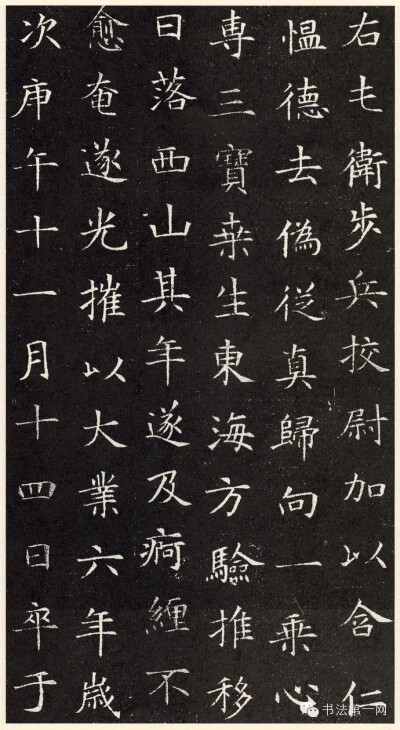 右屯衛步兵挍尉加以含仁
愠德去偽從真歸向一乘心
專三寳桒生東海方驗推移
日落西山其年遂及痾纏不
愈奄遂光摧以大業六年歳
次庚午十一月十四日卒于
书法第一网